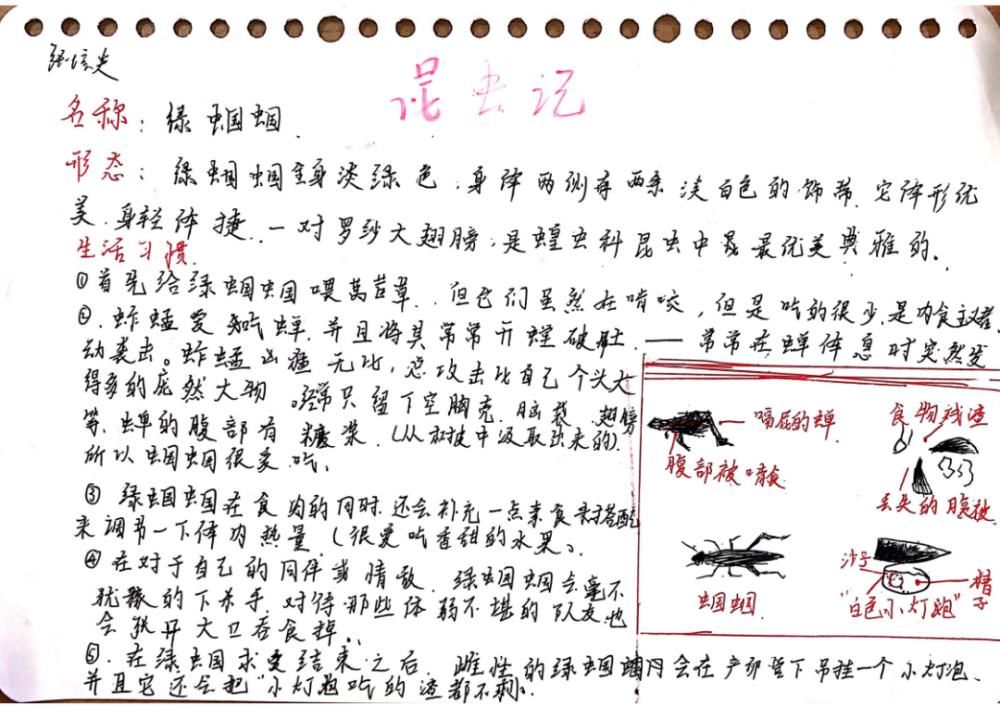 昆虫记
名称：绿蝈蝈.
形态：绿蝈蝈全身淡绿色.身体两侧有两条淡白色的饰带.它体形优
美.身轻体捷.一对罗纱大翅膀.是蝗虫科昆虫中最优美典雅的.
生活习惯.
①首先给绿蝈蝈喂莴苣草.但它们虽然在啃咬，但是吃的很少.是肉食主义者
②.蚱蜢爱吃蝉.并且将其常常开膛破肚.——常常在蝉休息时突然发
动袭击。蚱蜢凶猛无比，总攻击比自己个头大
得多的庞然大物.经常只留下空胸壳.脑袋.翅膀
等.蝉的腹部有糖浆.(从树枝中汲取出来的)
所以蝈蝈很爱吃.
③绿蝈蝈在食肉的同时.还会补充一点素食来搭配
来调节一下体内热量(很爱吃香甜的水果).
④在对于自己的同伴或情敌.绿蝈蝈会毫不
犹豫的下杀手.对待那些体弱不堪的队友也
会张开大口吞食掉..
⑤.在绿蝈求爱结束之后.雌性的绿蝈蝈会在产卵管下吊挂一个小灯泡.
并且它还会把"小灯泡吃的渣都不剩.
嗝屁的蝉
腹部被啃食
食物残渣
丢失的腹肢
蝈蝈
沙子
"白色小灯跑"
精子